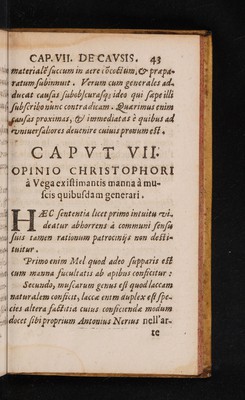 CAP. VII. DE CAVSIS. 43
materialẽ succum in aere icõcoctũ, & præpa-
ratum subinnuit. Verum cum generales ad-
ducat causas subobscurasq; ideo qui sæpe illi
subscribo nunc contradicam. Quærimus enim
causas proximas, & immediatas è quibus ad
vniuersaliores deuenire cuiuis pronum est.
CAPVT VII.
OPINIO CHRISTOPHORI
à Vega existimantis manna à mu-
scis quibusdam generari.
HÆC sententia licet primo intuitu vi-
deatur abhorrens à communi sensu
suis tamen rationum patrocinijs non desti-
tuitur.
Primo enim Mel quod adeo supparis est
cum manna facultatis ab apibus conficitur:
Secundo, muscarum genus est quod laccam
naturalem conficit, laccæ enim duplex est spe-
cies altera factitia cuius conficiendæ modum
docet sibi proprium Antonius Nerius nell'ar-
te